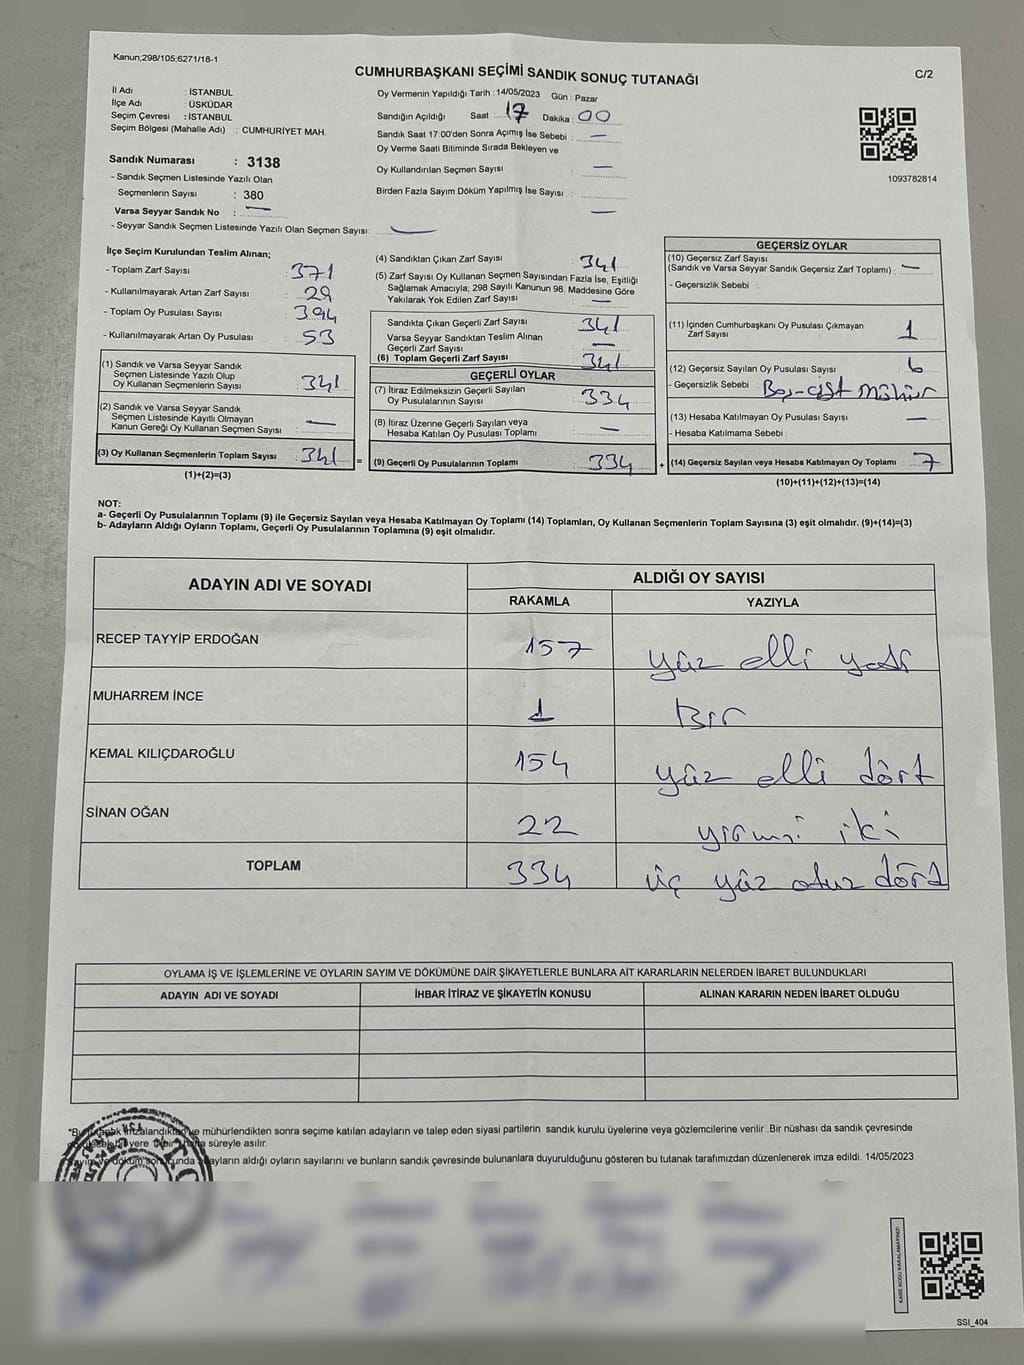 Kanun;298/105;6271/18-1
CUMHURBAŞKANI SEÇİMİ SANDIK SONUÇ TUTANAĞI
C/2
İl Adı : İSTANBUL
İlçe Adı : ÜSKÜDAR
Seçim Çevresi : İSTANBUL
Seçim Bölgesi (Mahalle Adı) : CUMHURİYET MAH.
Sandık Numarası : 3138
- Sandık Seçmen Listesinde Yazılı Olan
Seçmenlerin Sayısı : 380
Varsa Seyyar Sandık No : —
- Seyyar Sandık Seçmen Listesinde Yazılı Olan Seçmen Sayısı: —
Oy Vermenin Yapıldığı Tarih : 14/05/2023 Gün : Pazar
Sandığın Açıldığı Saat : 17 Dakika : 00
Sandık Saat 17:00'den Sonra Açımış İse Sebebi : —
Oy Verme Saati Bitiminde Sırada Bekleyen ve
Oy Kullandırılan Seçmen Sayısı : —
Birden Fazla Sayım Döküm Yapılmış İse Sayısı : —
1093782814
İlçe Seçim Kurulundan Teslim Alınan;
- Toplam Zarf Sayısı : 371
- Kullanılmayarak Artan Zarf Sayısı : 29
- Toplam Oy Pusulası Sayısı : 394
- Kullanılmayarak Artan Oy Pusulası : 53
(1) Sandık ve Varsa Seyyar Sandık
Seçmen Listesinde Yazılı Olup
Oy Kullanan Seçmenlerin Sayısı : 341
(2) Sandık ve Varsa Seyyar Sandık
Seçmen Listesinde Kayıtlı Olmayan
Kanun Gereği Oy Kullanan Seçmen Sayısı : —
(3) Oy Kullanan Seçmenlerin Toplam Sayısı : 341
(1)+(2)=(3)
(4) Sandıktan Çıkan Zarf Sayısı : 341
(5) Zarf Sayısı Oy Kullanan Seçmen Sayısından Fazla İse, Eşitliği
Sağlamak Amacıyla; 298 Sayılı Kanunun 98. Maddesine Göre
Yakılarak Yok Edilen Zarf Sayısı : —
Sandıkta Çıkan Geçerli Zarf Sayısı : 341
Varsa Seyyar Sandıktan Teslim Alınan
Geçerli Zarf Sayısı : —
(6) Toplam Geçerli Zarf Sayısı : 341
GEÇERLİ OYLAR
(7) İtiraz Edilmeksizin Geçerli Sayılan
Oy Pusulalarının Sayısı : 334
(8) İtiraz Üzerine Geçerli Sayılan veya
Hesaba Katılan Oy Pusulası Toplamı : —
= (9) Geçerli Oy Pusulalarının Toplamı : 334
GEÇERSİZ OYLAR
(10) Geçersiz Zarf Sayısı
(Sandık ve Varsa Seyyar Sandık Geçersiz Zarf Toplamı) : —
- Geçersizlik Sebebi :
(11) İçinden Cumhurbaşkanı Oy Pusulası Çıkmayan
Zarf Sayısı : 1
(12) Geçersiz Sayılan Oy Pusulası Sayısı : 6
- Geçersizlik Sebebi : Boş-çift mühür
(13) Hesaba Katılmayan Oy Pusulası Sayısı : —
- Hesaba Katılmama Sebebi :
+ (14) Geçersiz Sayılan veya Hesaba Katılmayan Oy Toplamı : 7
(10)+(11)+(12)+(13)=(14)
NOT:
a- Geçerli Oy Pusulalarının Toplamı (9) ile Geçersiz Sayılan veya Hesaba Katılmayan Oy Toplamı (14) Toplamları, Oy Kullanan Seçmenlerin Toplam Sayısına (3) eşit olmalıdır. (9)+(14)=(3)
b- Adayların Aldığı Oyların Toplamı, Geçerli Oy Pusulalarının Toplamına (9) eşit olmalıdır.
ADAYIN ADI VE SOYADI
ALDIĞI OY SAYISI
RAKAMLA
YAZIYLA
RECEP TAYYİP ERDOĞAN 157 yüz elli yedi
MUHARREM İNCE 1 Bir
KEMAL KILIÇDAROĞLU 154 yüz elli dört
SİNAN OĞAN 22 yirmi iki
TOPLAM 334 üç yüz otuz dört
OYLAMA İŞ VE İŞLEMLERİNE VE OYLARIN SAYIM VE DÖKÜMÜNE DAİR ŞİKAYETLERLE BUNLARA AİT KARARLARIN NELERDEN İBARET BULUNDUKLARI
ADAYIN ADI VE SOYADI
İHBAR İTİRAZ VE ŞİKAYETİN KONUSU
ALINAN KARARIN NEDEN İBARET OLDUĞU
mühürlendikten sonra seçime katılan adayların ve talep eden siyasi partilerin sandık kurulu üyelerine veya gözlemcilerine verilir .Bir nüshası da sandık çevresinde
yere süreyle asılır.
adayların aldığı oyların sayılarını ve bunların sandık çevresinde bulunanlara duyurulduğunu gösteren bu tutanak tarafımızdan düzenlenerek imza edildi. 14/05/2023
KARE KODU KARALAMAYINIZ!
SSI_404